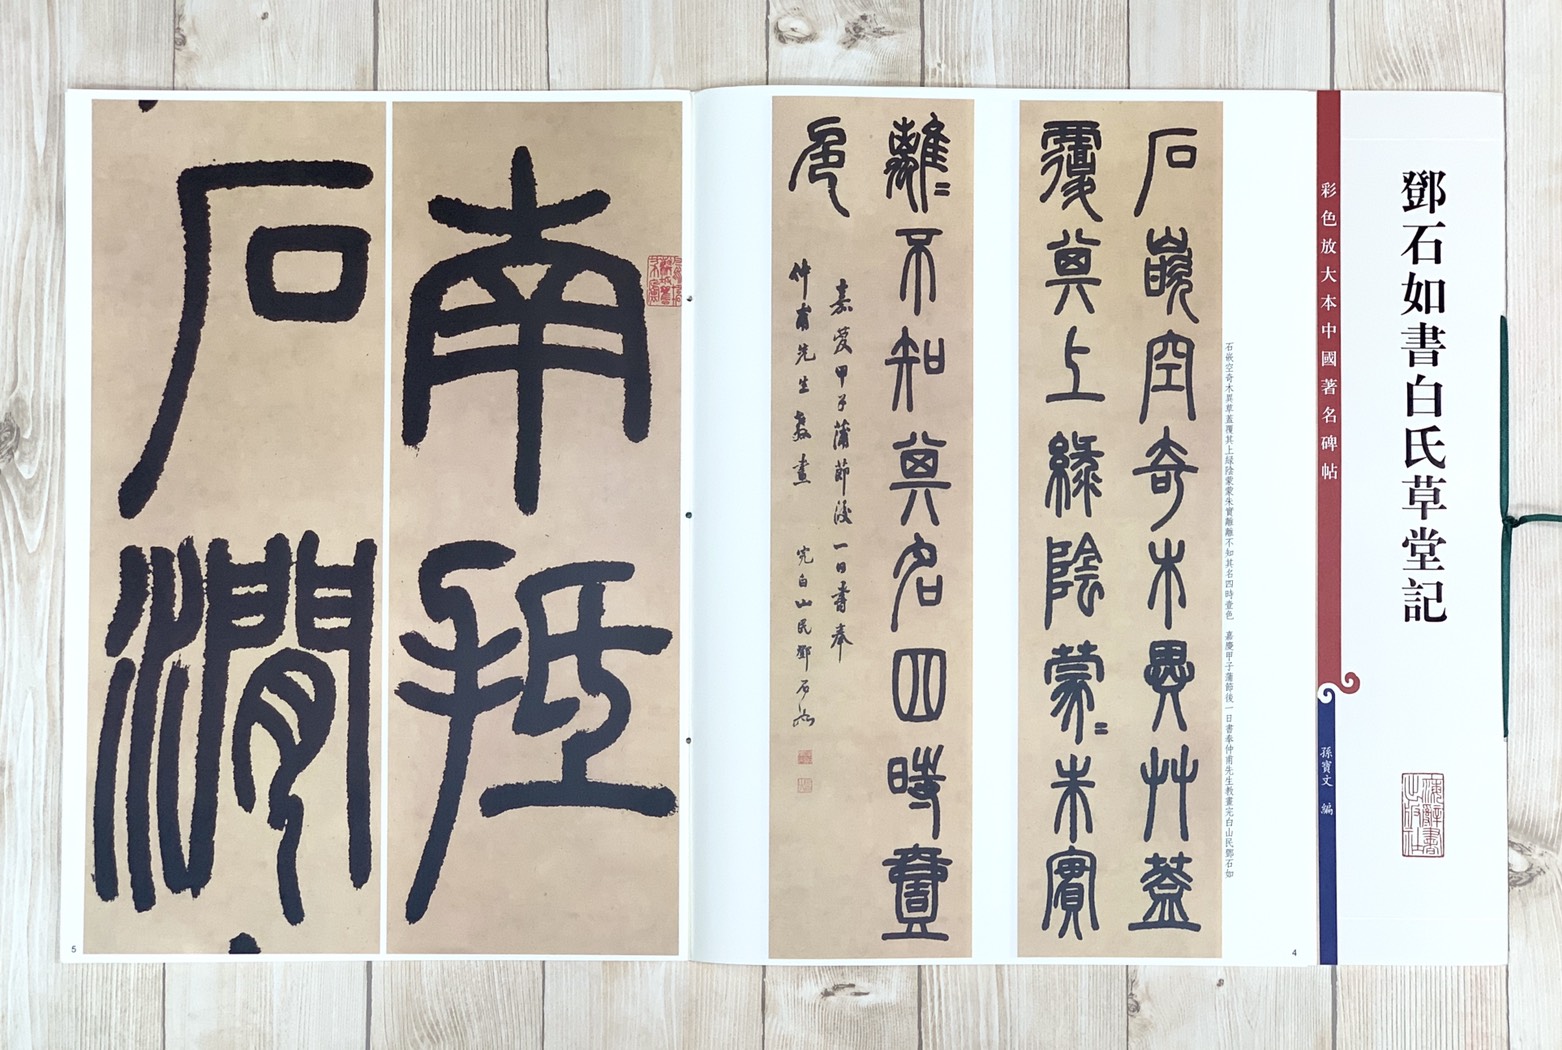 鄧石如書白氏草堂記
彩色放大本中國著名碑帖
孫寶文 編
上海辭書
出版社
石嵌空奇木異草蓋覆其上緑陰蒙蒙朱實離離不知其名四時壹色 嘉慶甲子蒲節後一日書奉仲甫先生教畫完白山民鄧石如
石嵌空奇木異艸蓋
覆其上緑陰蒙〻朱實
離〻不知其名四時壹
色
嘉慶甲子蒲節後一日書奉
仲甫先生教畫 完白山民鄧石如
4
南抵
石澗
5